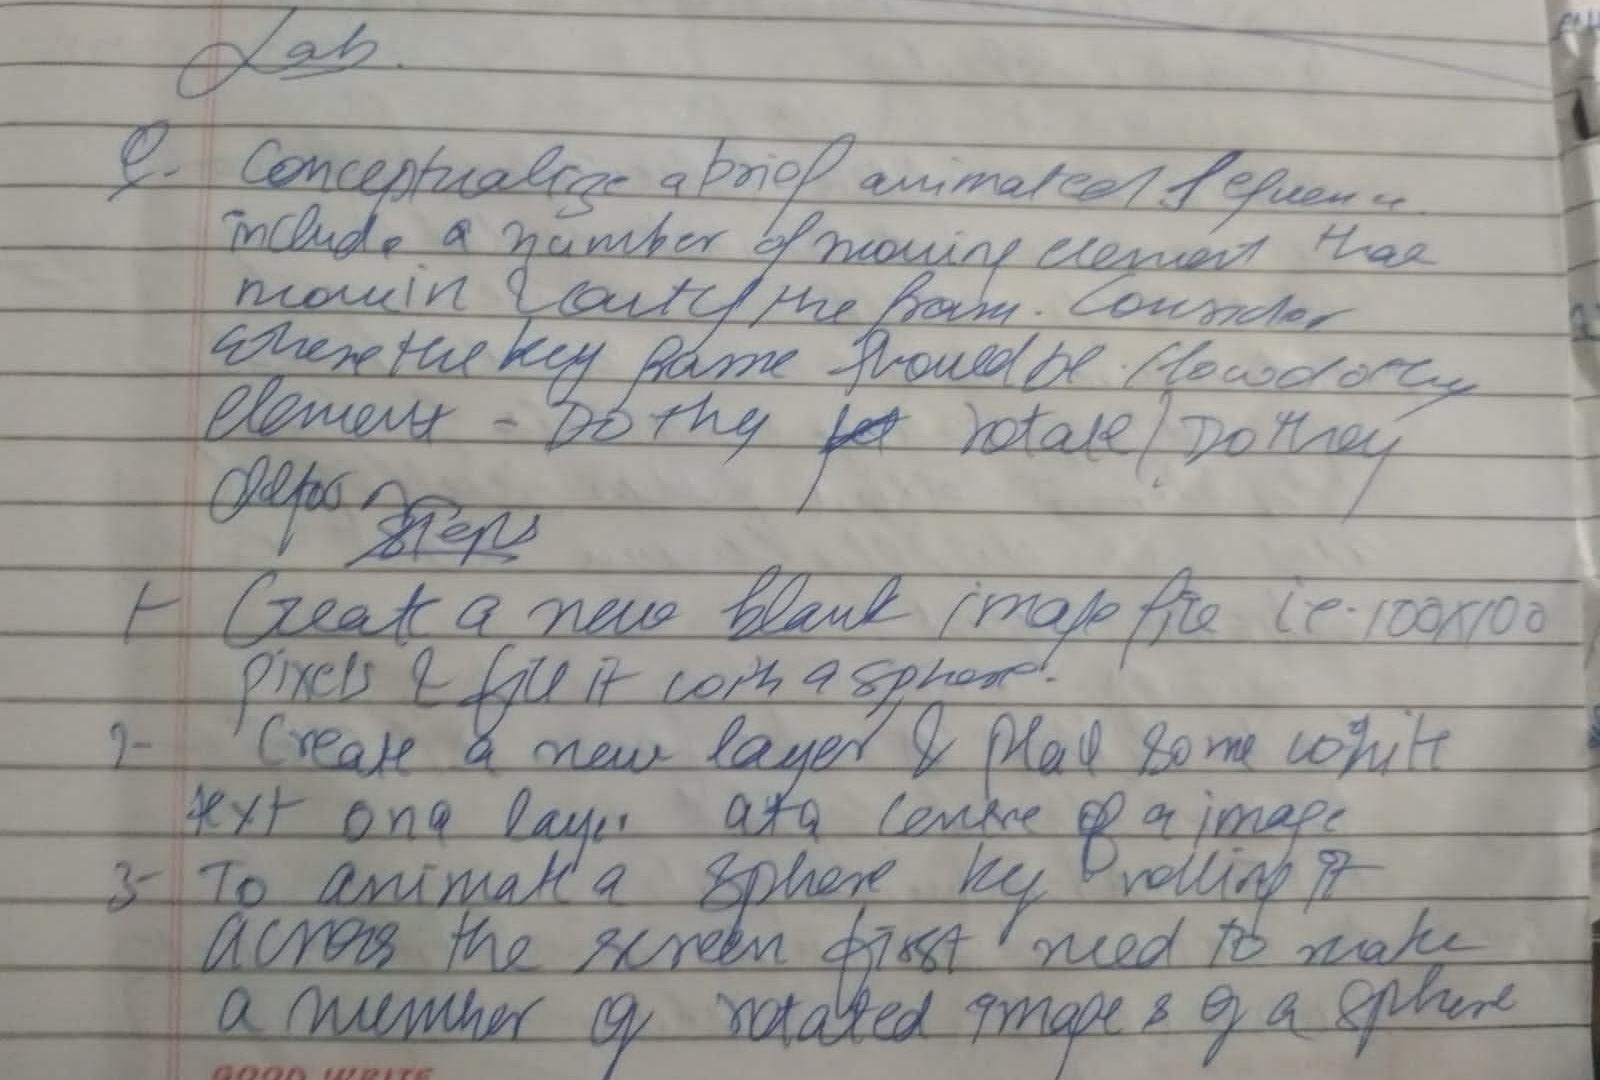 Lab.
Q. Conceptualize a brief animated Sequence
include a number of moving element that
move in & out of the fram. Consider
where the key frame should be. How do
element - Do they rotate? Do they
Steps
1- Create a new blank image file i.e. 100x100
pixels & fill it with a sphere.
2- Create a new layer & place some white
text on a layer at a centre of a image
3- To animate a sphere by rolling it
across the screen first need to make
a number of rotated images of a sphere
GOOD WRITE